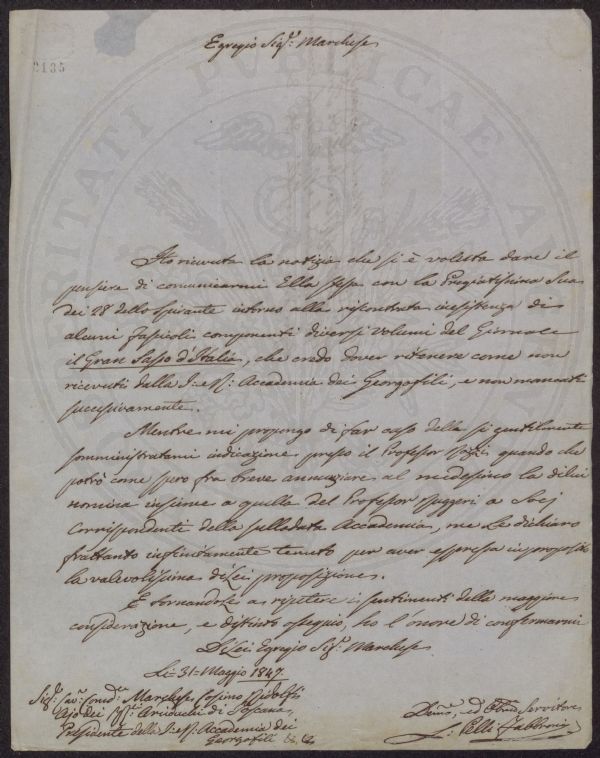 Egregio Sig.r Marchese
2135
Ho ricevuta la notizia che si è voluta dare il
pensiere di comunicarmi Ella stessa con la Pregiatissima Sua
dei 28 dello spirante intorno alla riscontrata inesistenza di
alcuni fascicoli componenti diversi volumi del Giornale
il Gran Sasso d'Italia, che credo dover ritenere come non
ricevuti dalla I: e R: Accademia dei Georgofili, e non mancati
successivamente.
Mentre mi propongo di far caso della si gentilmente
somministratami indicazione presso il Professor quando che
potrò come spero fra breve annunziare al medesimo la di lui
nomina insieme a quella del Professor a Socj
Corrispondenti della sullodata Accademia, me Le dichiaro
frattanto infinitamente tenuto per aver espressa in proposito
la valevolissima di Lei proposizione.
E tornandole a ripetere i sentimenti della maggiore
considerazione, e distinto ossequio, ho l'onore di confermarmi
Di Lei Egregio Sig.r Marchese
Li 31 Maggio 1847.
Sig.r Cav: Comd.re Marchese Cosimo Ridolfi
Ajo dei Arciduchi di Toscana
Presidente della I: e R: Accademia dei
Georgofili
Dev.mo, ed Servitore
L: Pelli Fabbroni